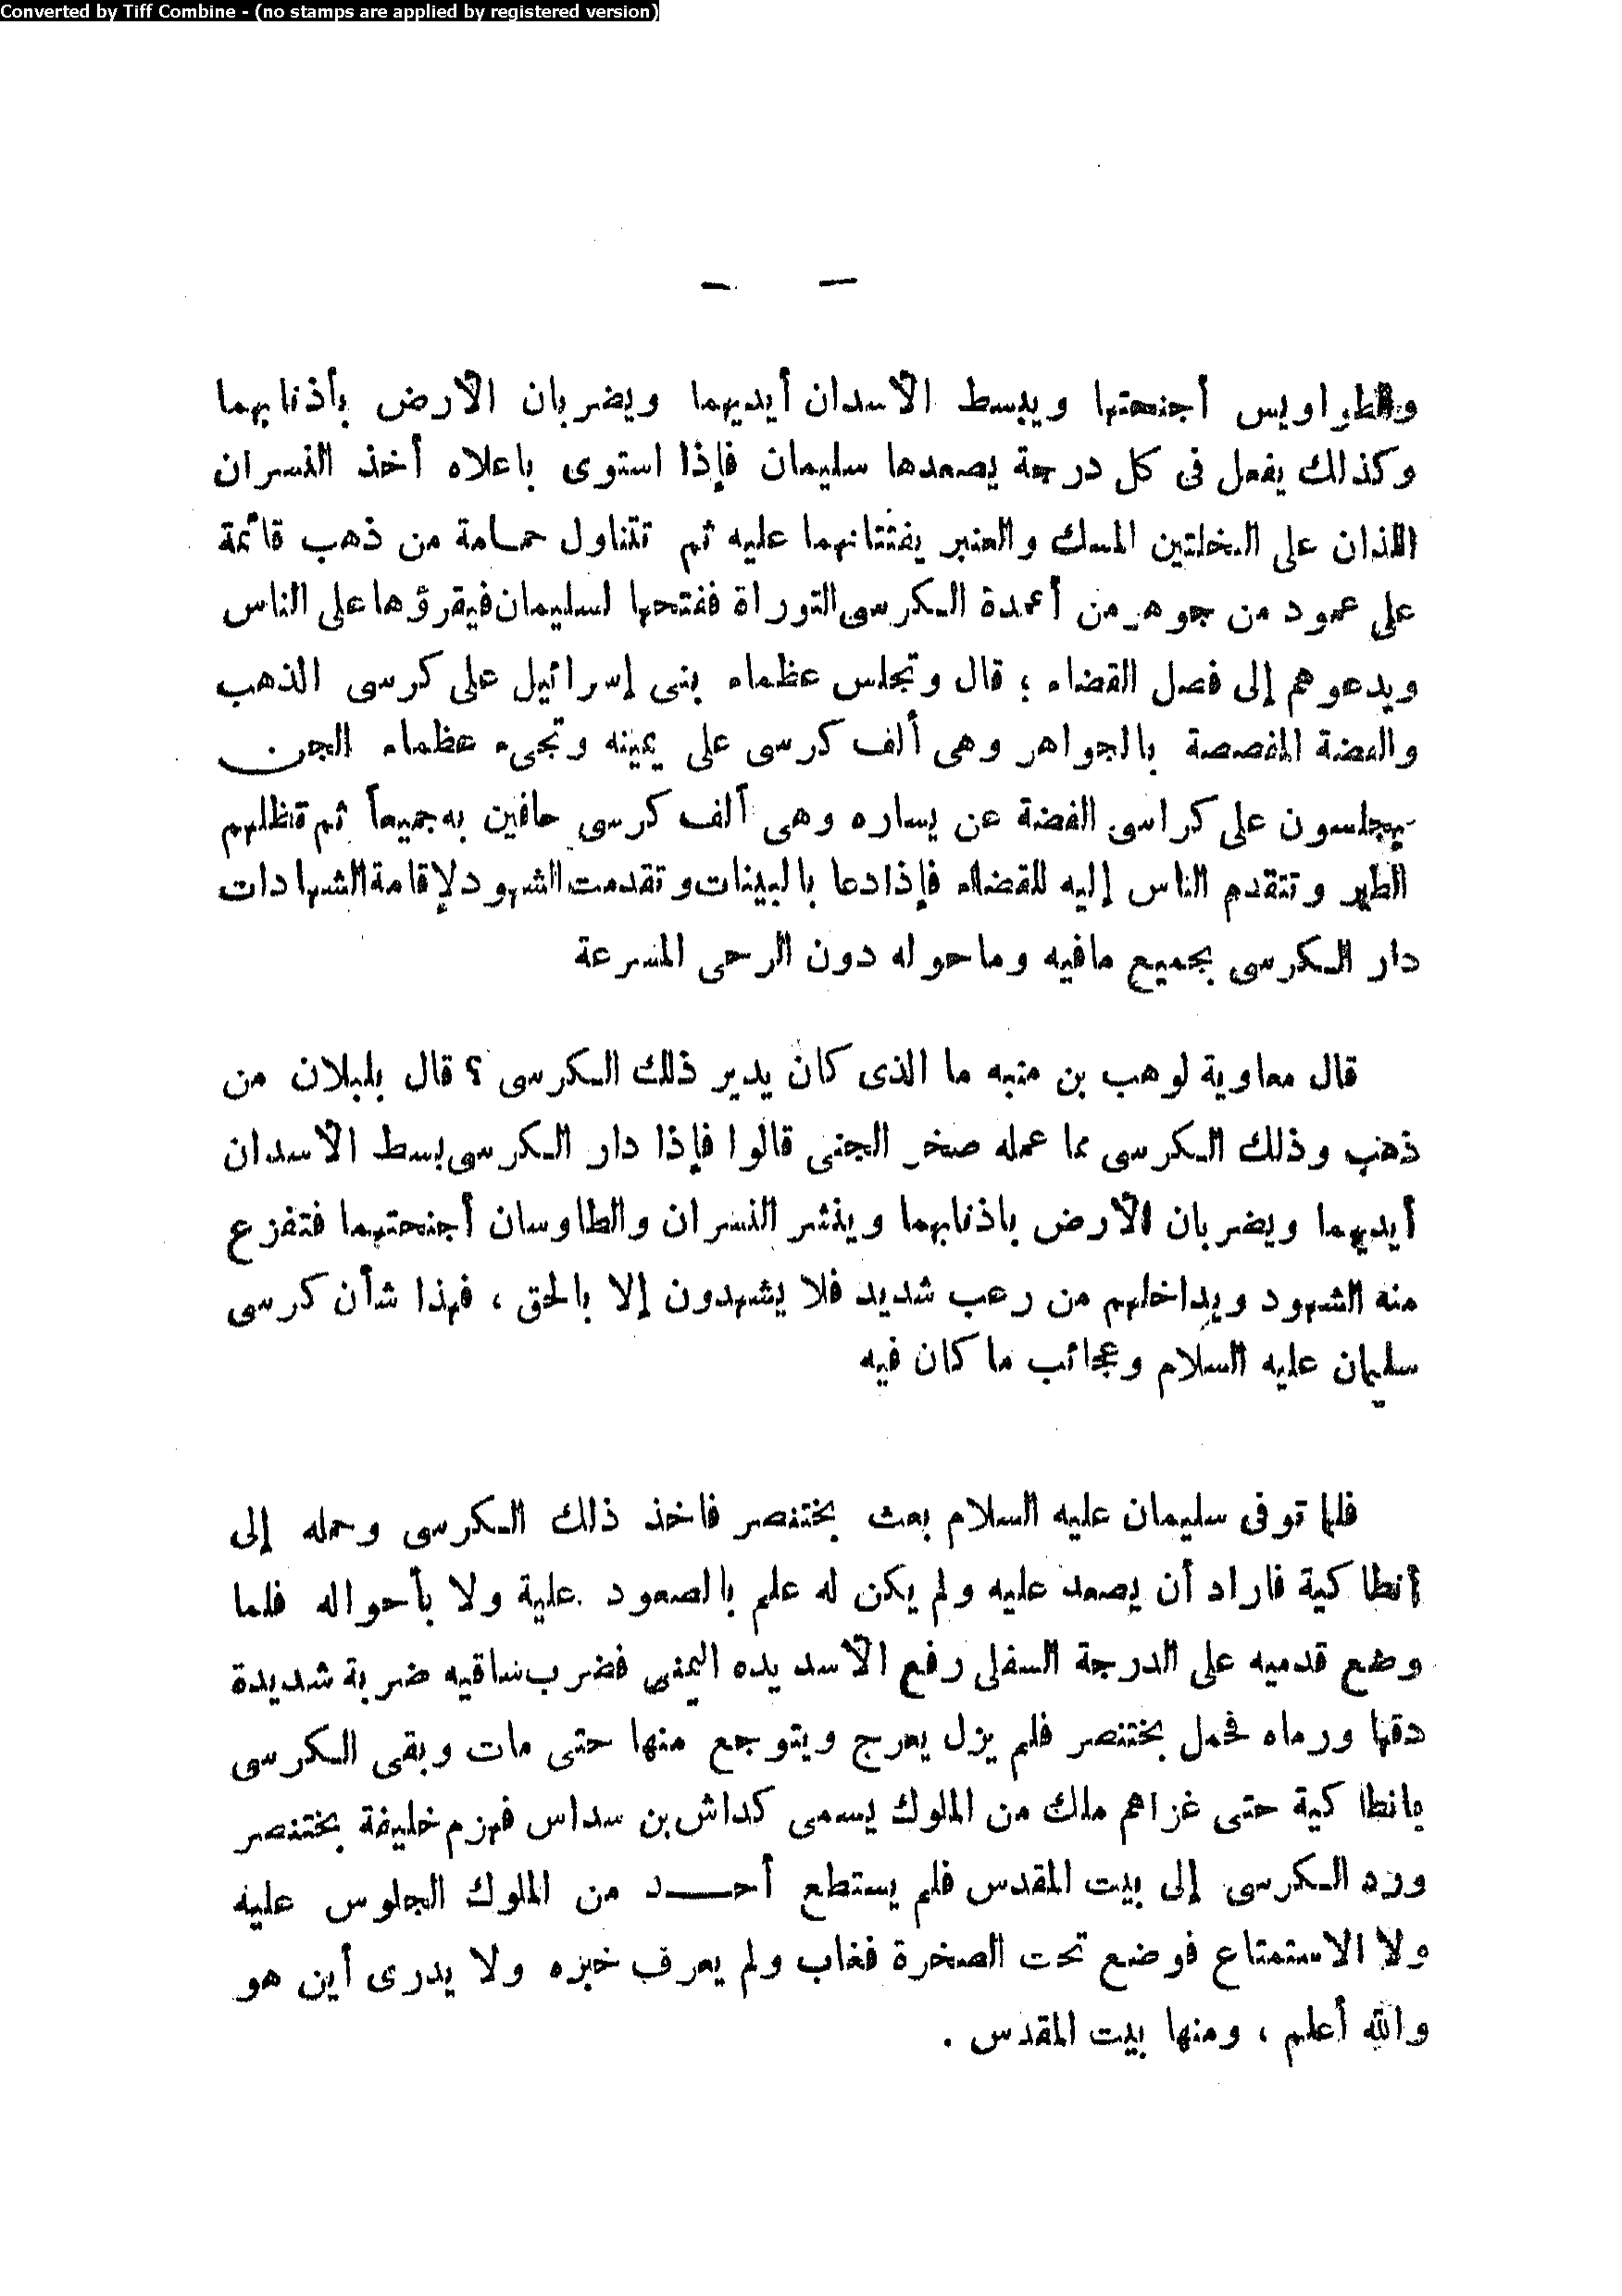 Converted by Tiff Combine - (no stamps are applied by registered version)
— —
والطواويس أجنحتها ويبسط الأسدان أيديهما ويضربان الأرض بأذنابهما
وكذلك يفعل فى كل درجة يصعدها سليمان فإذا استوى باعلاه أخذ النسران
اللذان على النخلتين المسك والعنبر يفتتانهما عليه ثم تتناول حمامة من ذهب قائمة
على عمود من جوهر من أعمدة الكرسى التوراة ففتحها لسليمان فيقرؤها على الناس
ويدعوهم إلى فصل القضاء ؛ قال وتجلس عظماء بنى إسرائيل على كرسى الذهب
والفضة المفصصة بالجواهر وهى ألف كرسى على يمينه وتجىء عظماء الجن
يجلسون على كراسى الفضة عن يساره وهى ألف كرسى حافين به جميعاً ثم تظلهم
الطير وتتقدم الناس إليه للقضاء فإذا دعا بالبينات وتقدمت الشهود لإقامة الشهادات
دار الكرسى بجميع مافيه وماحوله دون الرحى المسرعة
قال معاوية لوهب بن منبه ما الذى كان يدير ذلك الكرسى ؟ قال بلبلان من
ذهب وذلك الكرسى مما عمله صخر الجنى قالوا فإذا دار الكرسى بسط الأسدان
أيديهما ويضربان الأرض باذنابهما وينشر النسران والطاوسان أجنحتهما فتفزع
منه الشهود ويداخلهم من رعب شديد فلا يشهدون إلا بالحق ، فهذا شأن كرسى
سليمان عليه السلام وعجائب ما كان فيه
فلما توفى سليمان عليه السلام بعث بختنصر فاخذ ذلك الكرسى وحمله إلى
أنطاكية فاراد أن يصعد عليه ولم يكن له علم بالصعود علية ولا بأحواله فلما
وضع قدميه على الدرجة السفلى رفع الأسد يده اليمنى فضرب ساقيه ضربة شديدة
دقها ورماه فحمل بختنصر فلم يزل يعرج ويتوجع منها حتى مات وبقى الكرسى
بانطاكية حتى غزاهم ملك من الملوك يسمى كداش بن سداس فهزم خليفة بختنصر
ورد الكرسى إلى بيت المقدس فلم يستطع أحـــد من الملوك الجلوس عليه
ولا الاستمتاع فوضع تحت الصخرة فغاب ولم يعرف خبره ولا يدرى أين هو
والله أعلم ، ومنها بيت المقدس .